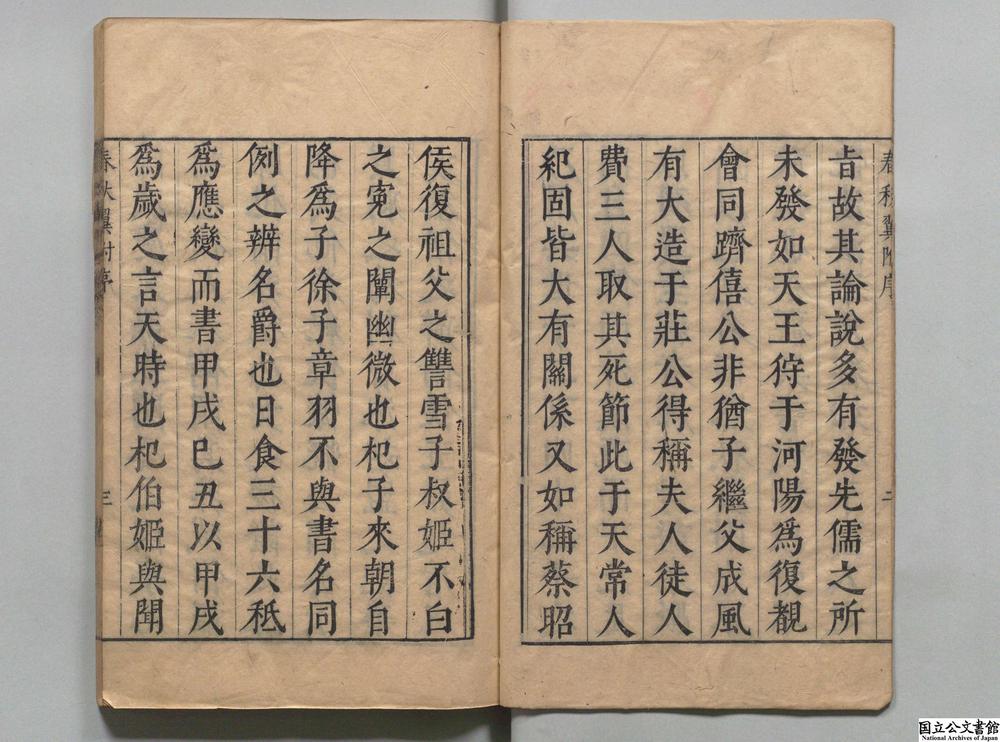 春秋翼附序
二
旨故其論說多有發先儒之所
未發如天王狩于河陽為復覩
會同躋僖公非猶子繼父成風
有大造于莊公得稱夫人徒人
費三人取其死節此于天常人
紀固皆大有關係又如稱蔡昭
侯復祖父之讐雪子叔姬不白
之寃之闡幽微也杞子來朝自
降爲子徐子章羽不與書名同
例之辨名爵也日食三十六秪
爲應變而書甲戌巳丑以甲戌
爲歲之言天時也杞伯姬與聞
春秋翼附序
三
国立公文書館
National Archives of Japan